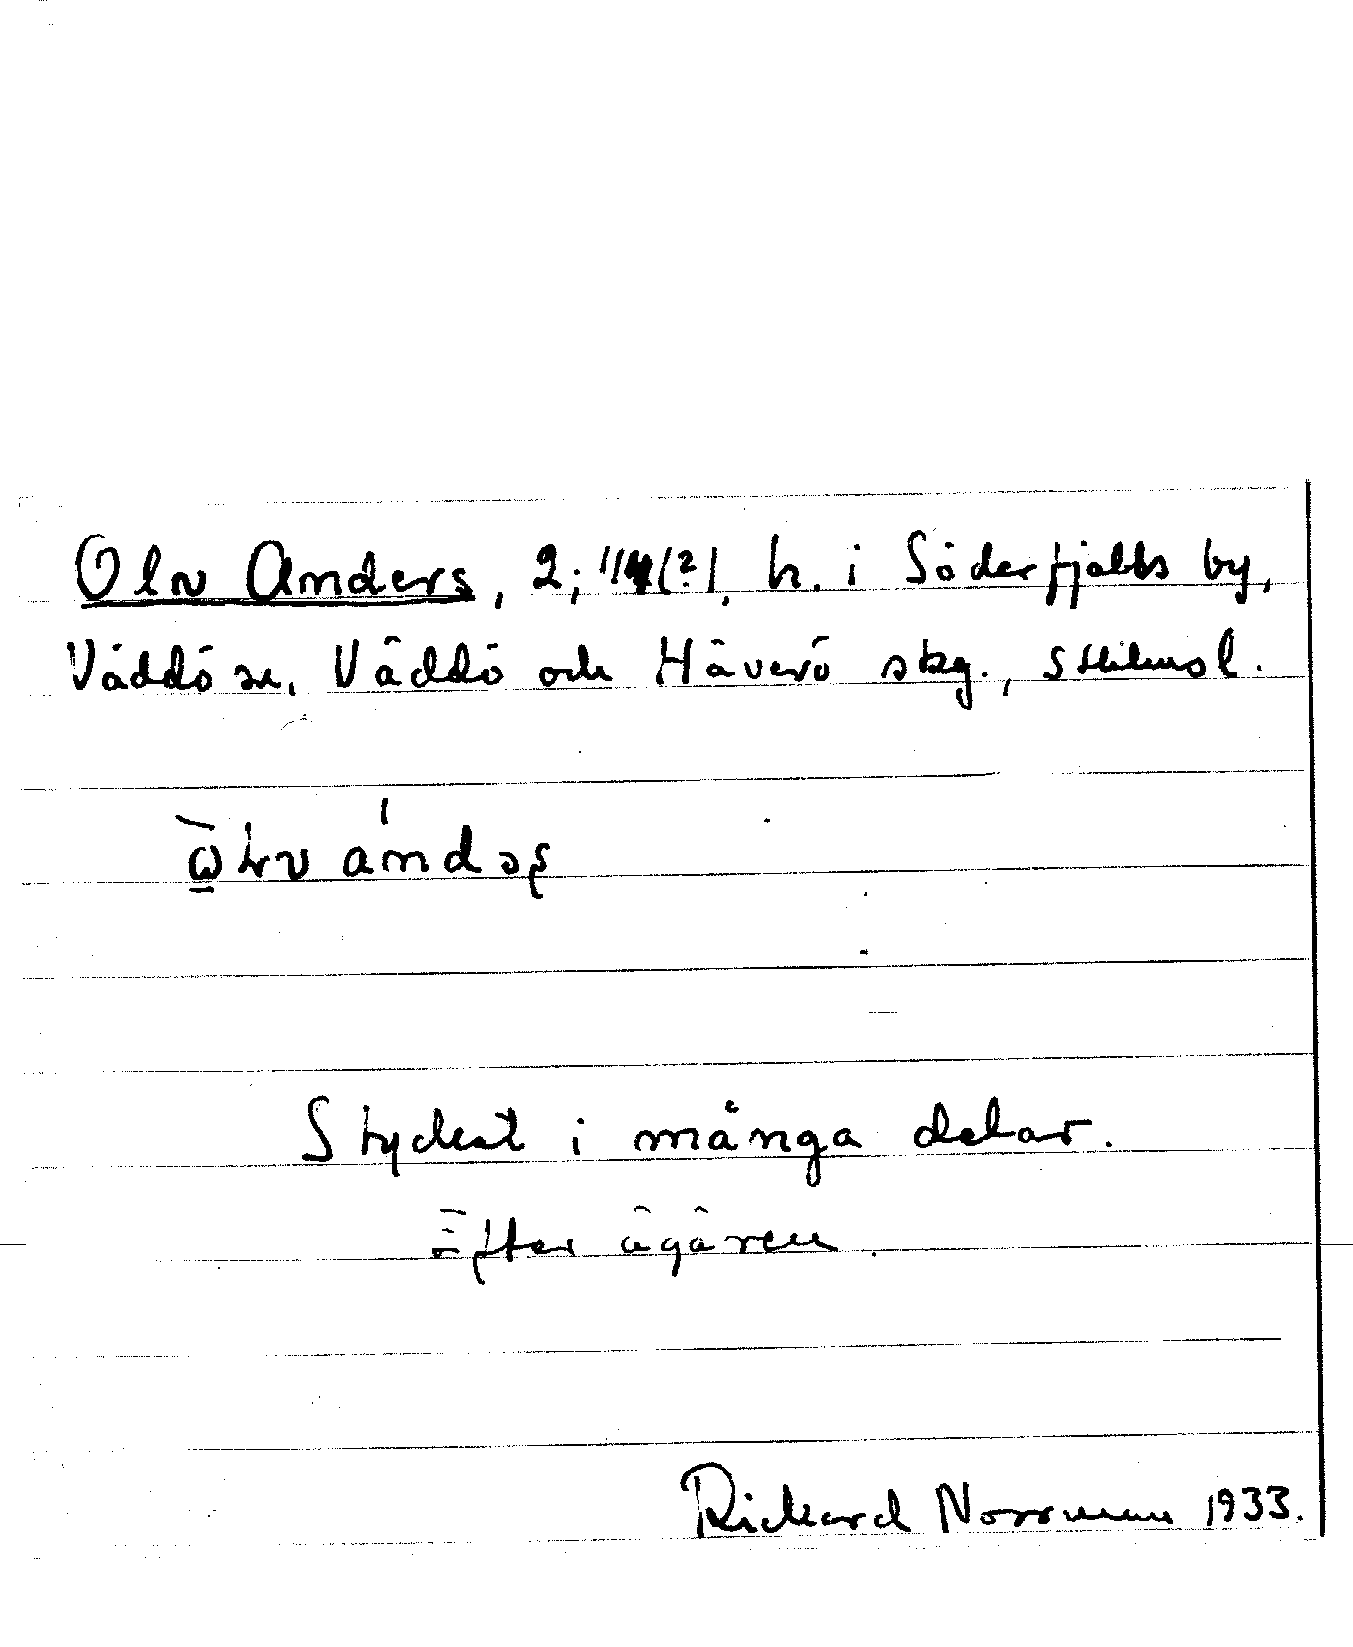 Oln Anders, 2; 114(?), h. i Söderfjälls by,
Väddö sn, Väddö och Häverö skg., Sthlmsl.
Styckat i många delar.
Efter ägaren.
Rickard Norrman 1933.